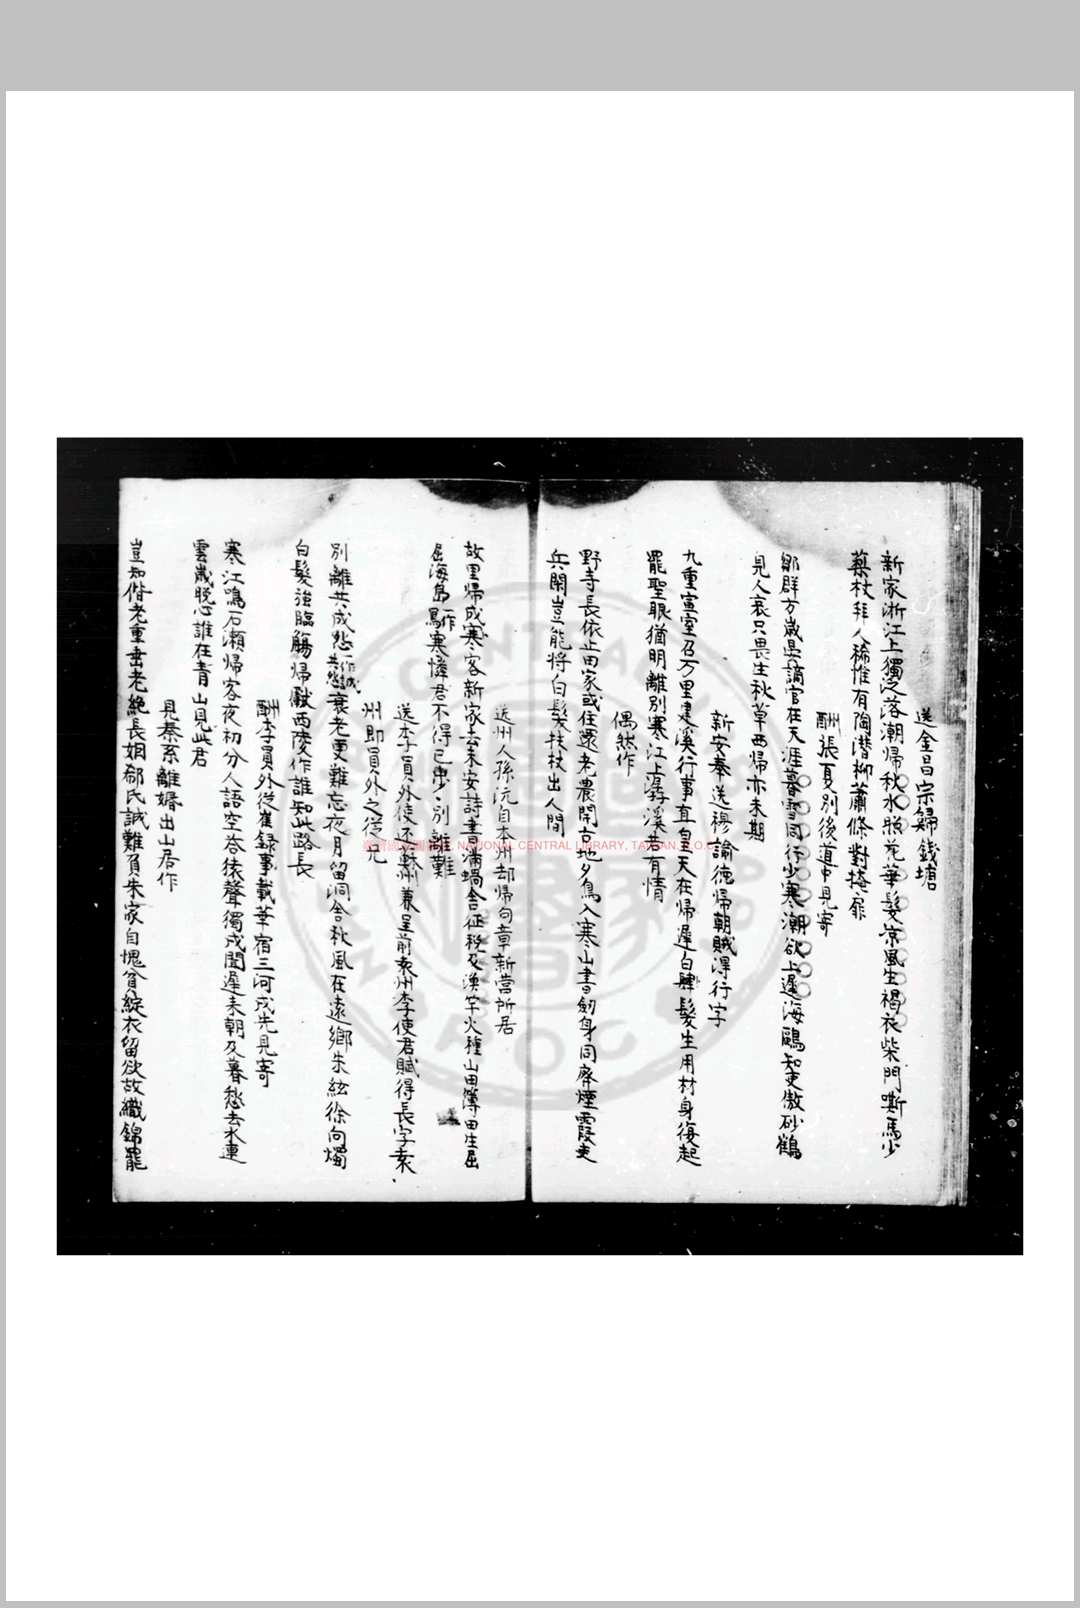 送金昌宗歸錢塘
新家浙江上獨泛落潮歸秋水照花華髮凉風生褐衣柴門嘶馬少
藜杖拜人稀惟有陶潜柳蕭條對掩扉
酬張夏別後道中見寄
鄒群方歲晏謫官在天涯暮雪同行少寒潮欲上遲海鷗知吏傲砂鶴
見人衰只畏生秋草西歸亦未期
新安奉送穆諭德歸朝賊淂行字
九重宣室召万里建溪行事直皇天在歸遲白髮生用材身復起
罷聖眼猶明離別寒江上潺溪若有情
偶然作
野寺長依止田家或住還老農開古地夕鳥入寒山書劒身同廢煙霞吏
兵閑豈能將白髮扶杖出人間
送州人孫沅自本州却歸句章新營所居
故里歸成寒客新家去未安詩書滿蝸舍征稅及漁竿火種山田薄田生屈
屈海島一作寒憐君不得已步別離難
送李員外使还蘇州兼呈前袁州李使君賦得長字袁
州即員外之從兄
別離共成怨一作愁衰老更難忘夜月留洞舍秋風在遠鄉朱絃徐向燭
白髮強臨觴歸獻西陵作誰知此路長
酬李員外從崔録事載華宿三河戍先見寄
寒江鳴石瀬歸客夜初分人語空答猿聲獨戍聞遲来朝及暮愁去水連
雲歲晚心誰在青山見此君
見秦系離婚出山居作
豈知偕老重垂老絶長姻郗氏誠難負朱家自愧貧綻衣留欲故織錦罷
臺灣 NATIONAL CENTRAL LIBRARY, TAIWAN, R.O.C.